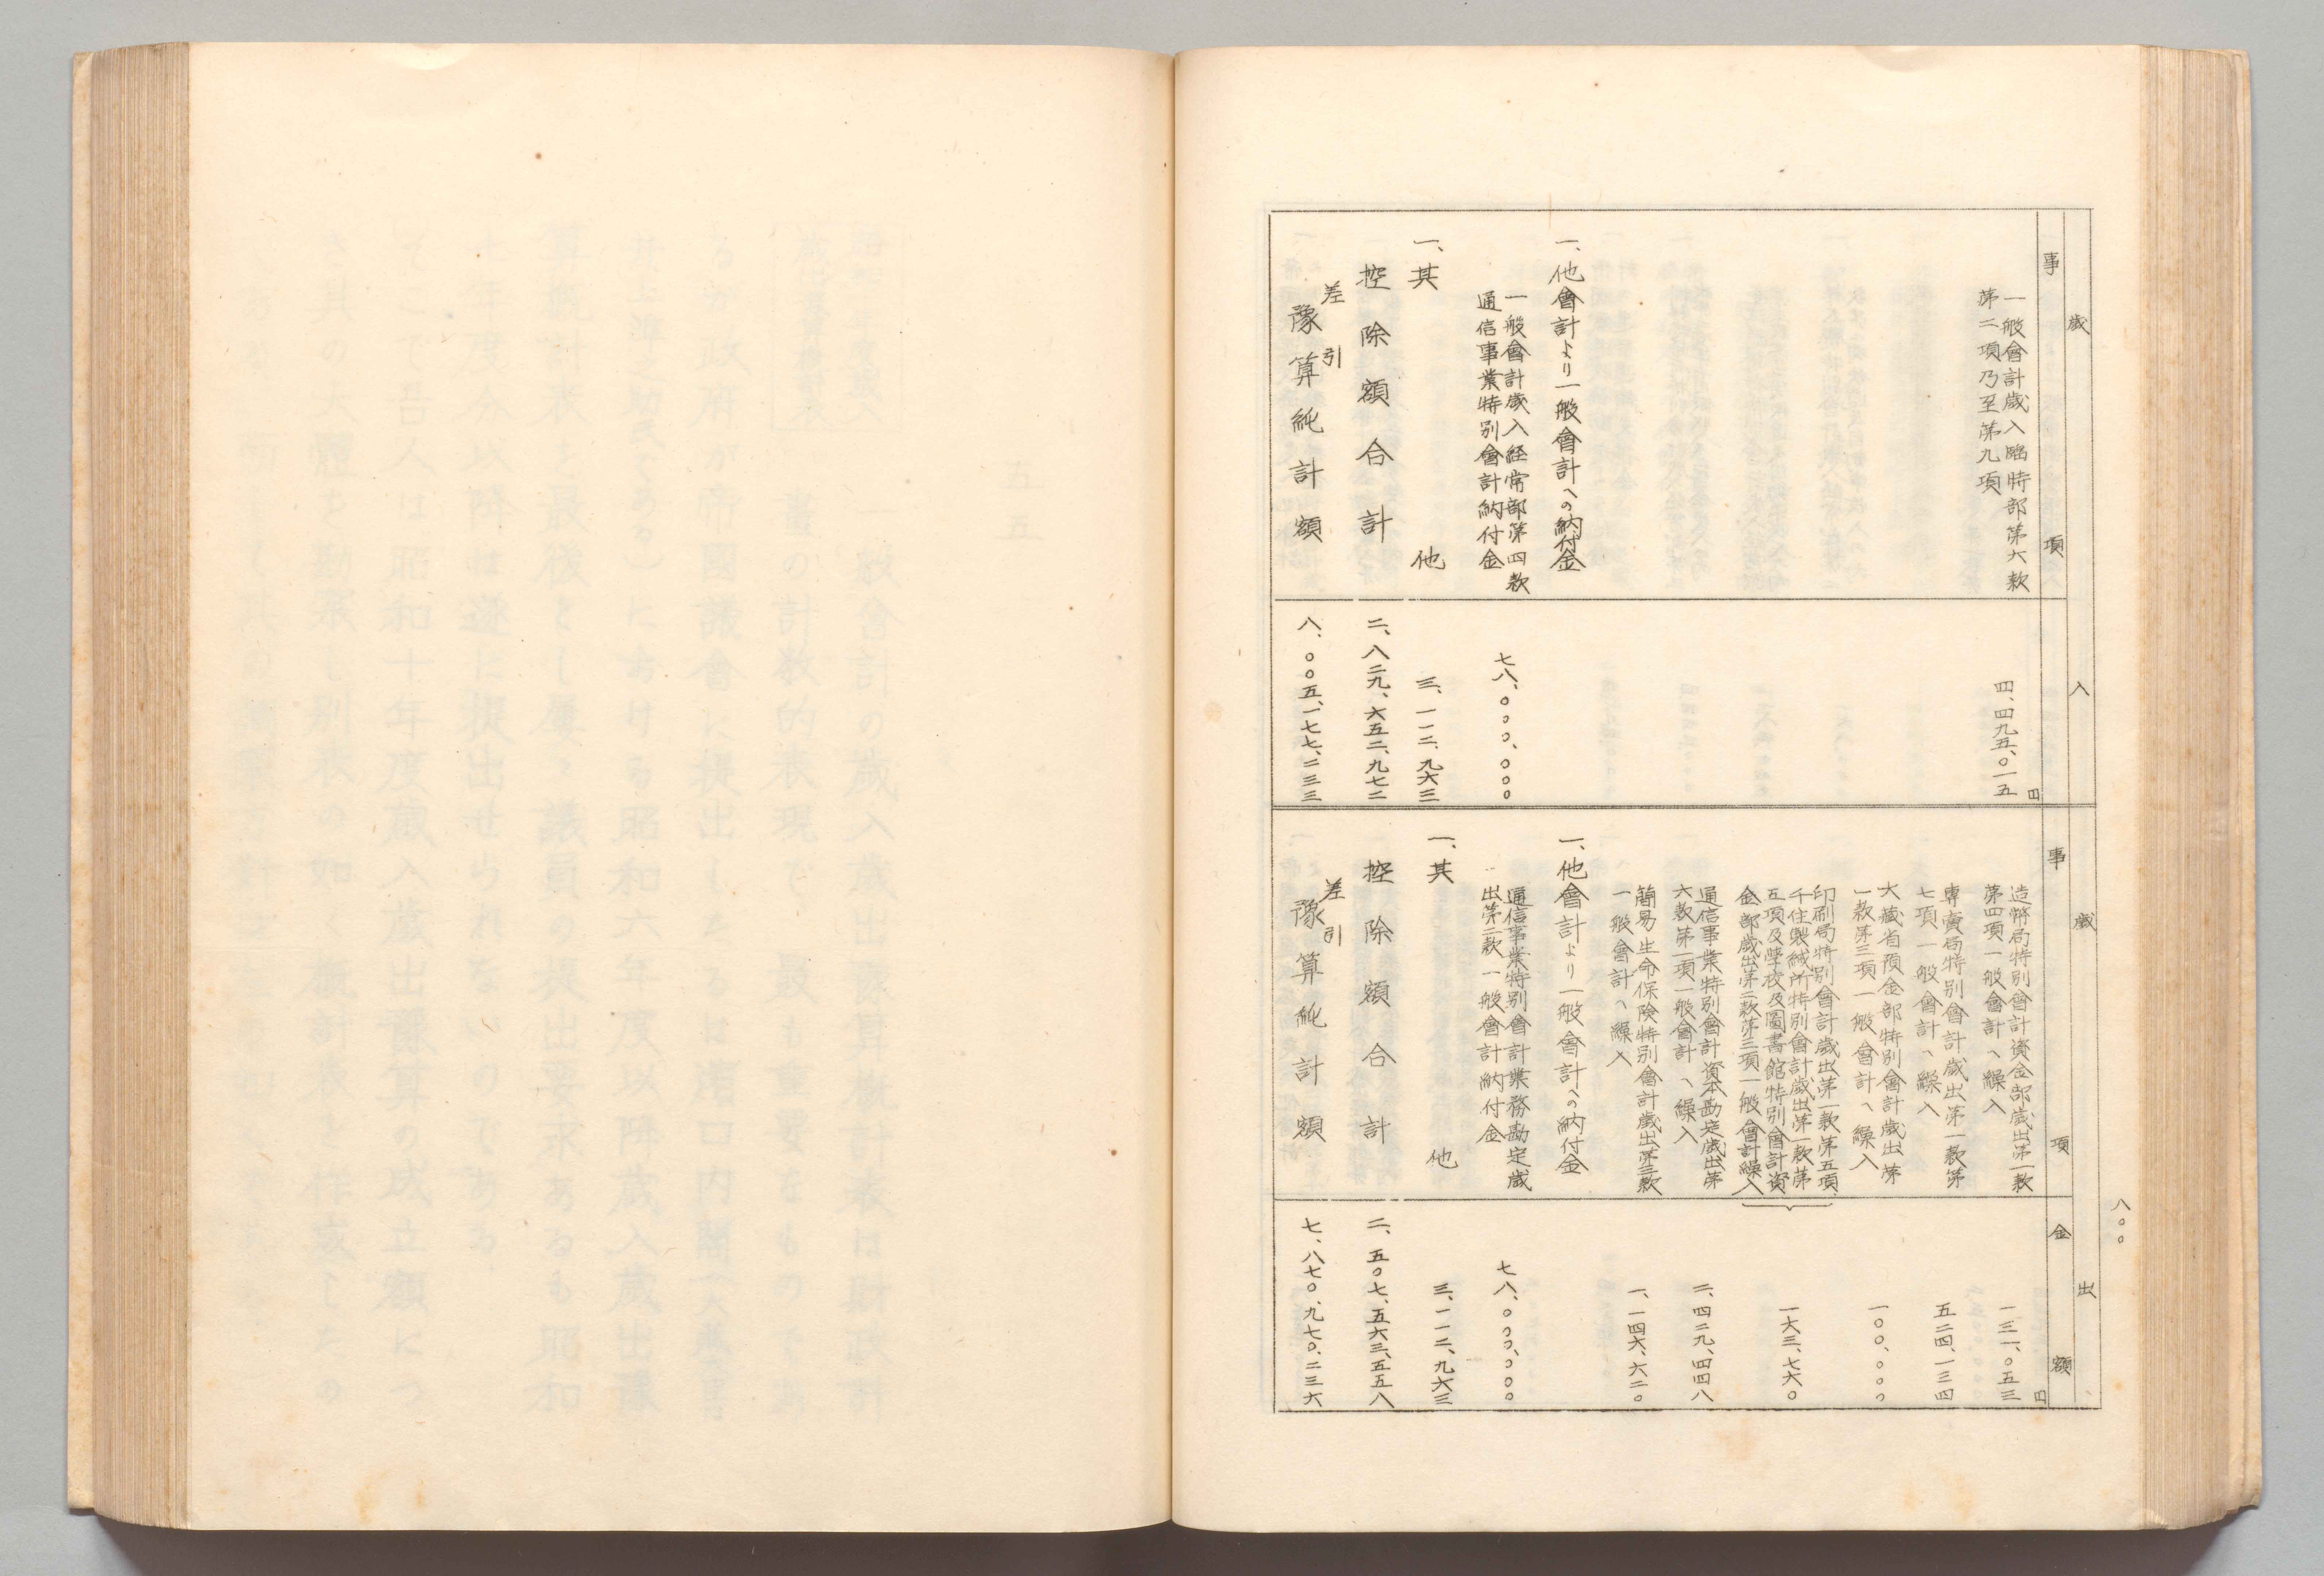 八〇〇
歳入
事項
円
一般會計歳入臨時部第六款
第二項乃至第九項
四、四九五、〇一五
一、他會計より一般會計への納付金
一般會計歳入経常部第四款
通信事業特別會計納付金
七八、〇〇〇、〇〇〇
一、其他
三、一一二、九六三
控除額合計
二、八二九、六五二、九七二
差引
豫算純計額
八、〇〇五、一七七、二三三
歳出
事項
金額
円
造幣局特別會計資金部歳出第一款
第四項一般會計へ繰入
一三一、〇五三
専賣局特別會計歳出第一款第
七項一般會計へ繰入
五二四、一三四
大藏省預金部特別會計歳出第
一款第三項一般會計へ繰入
一〇〇、〇〇〇
印刷局特別會計歳出第一款第五項
千住製絨所特別會計歳出第一款第
五項及學校及圖書館特別會計資
金部歳出第二款第三項一般會計繰入
一六三、七六〇
通信事業特別會計資本勘定歳出第
六款第一項一般會計へ繰入
二、四二九、四四八
簡易生命保険特別會計歳出第三款
一般會計へ繰入
一、一四六、六二〇
一、他會計より一般會計への納付金
通信事業特別會計業務勘定歳
出第二款一般會計納付金
七八、〇〇〇、〇〇〇
一、其他
三、一一二、九六三
控除額合計
二、五〇七、五六三、五五八
差引
豫算純計額
七、八七〇、九七〇、二三六